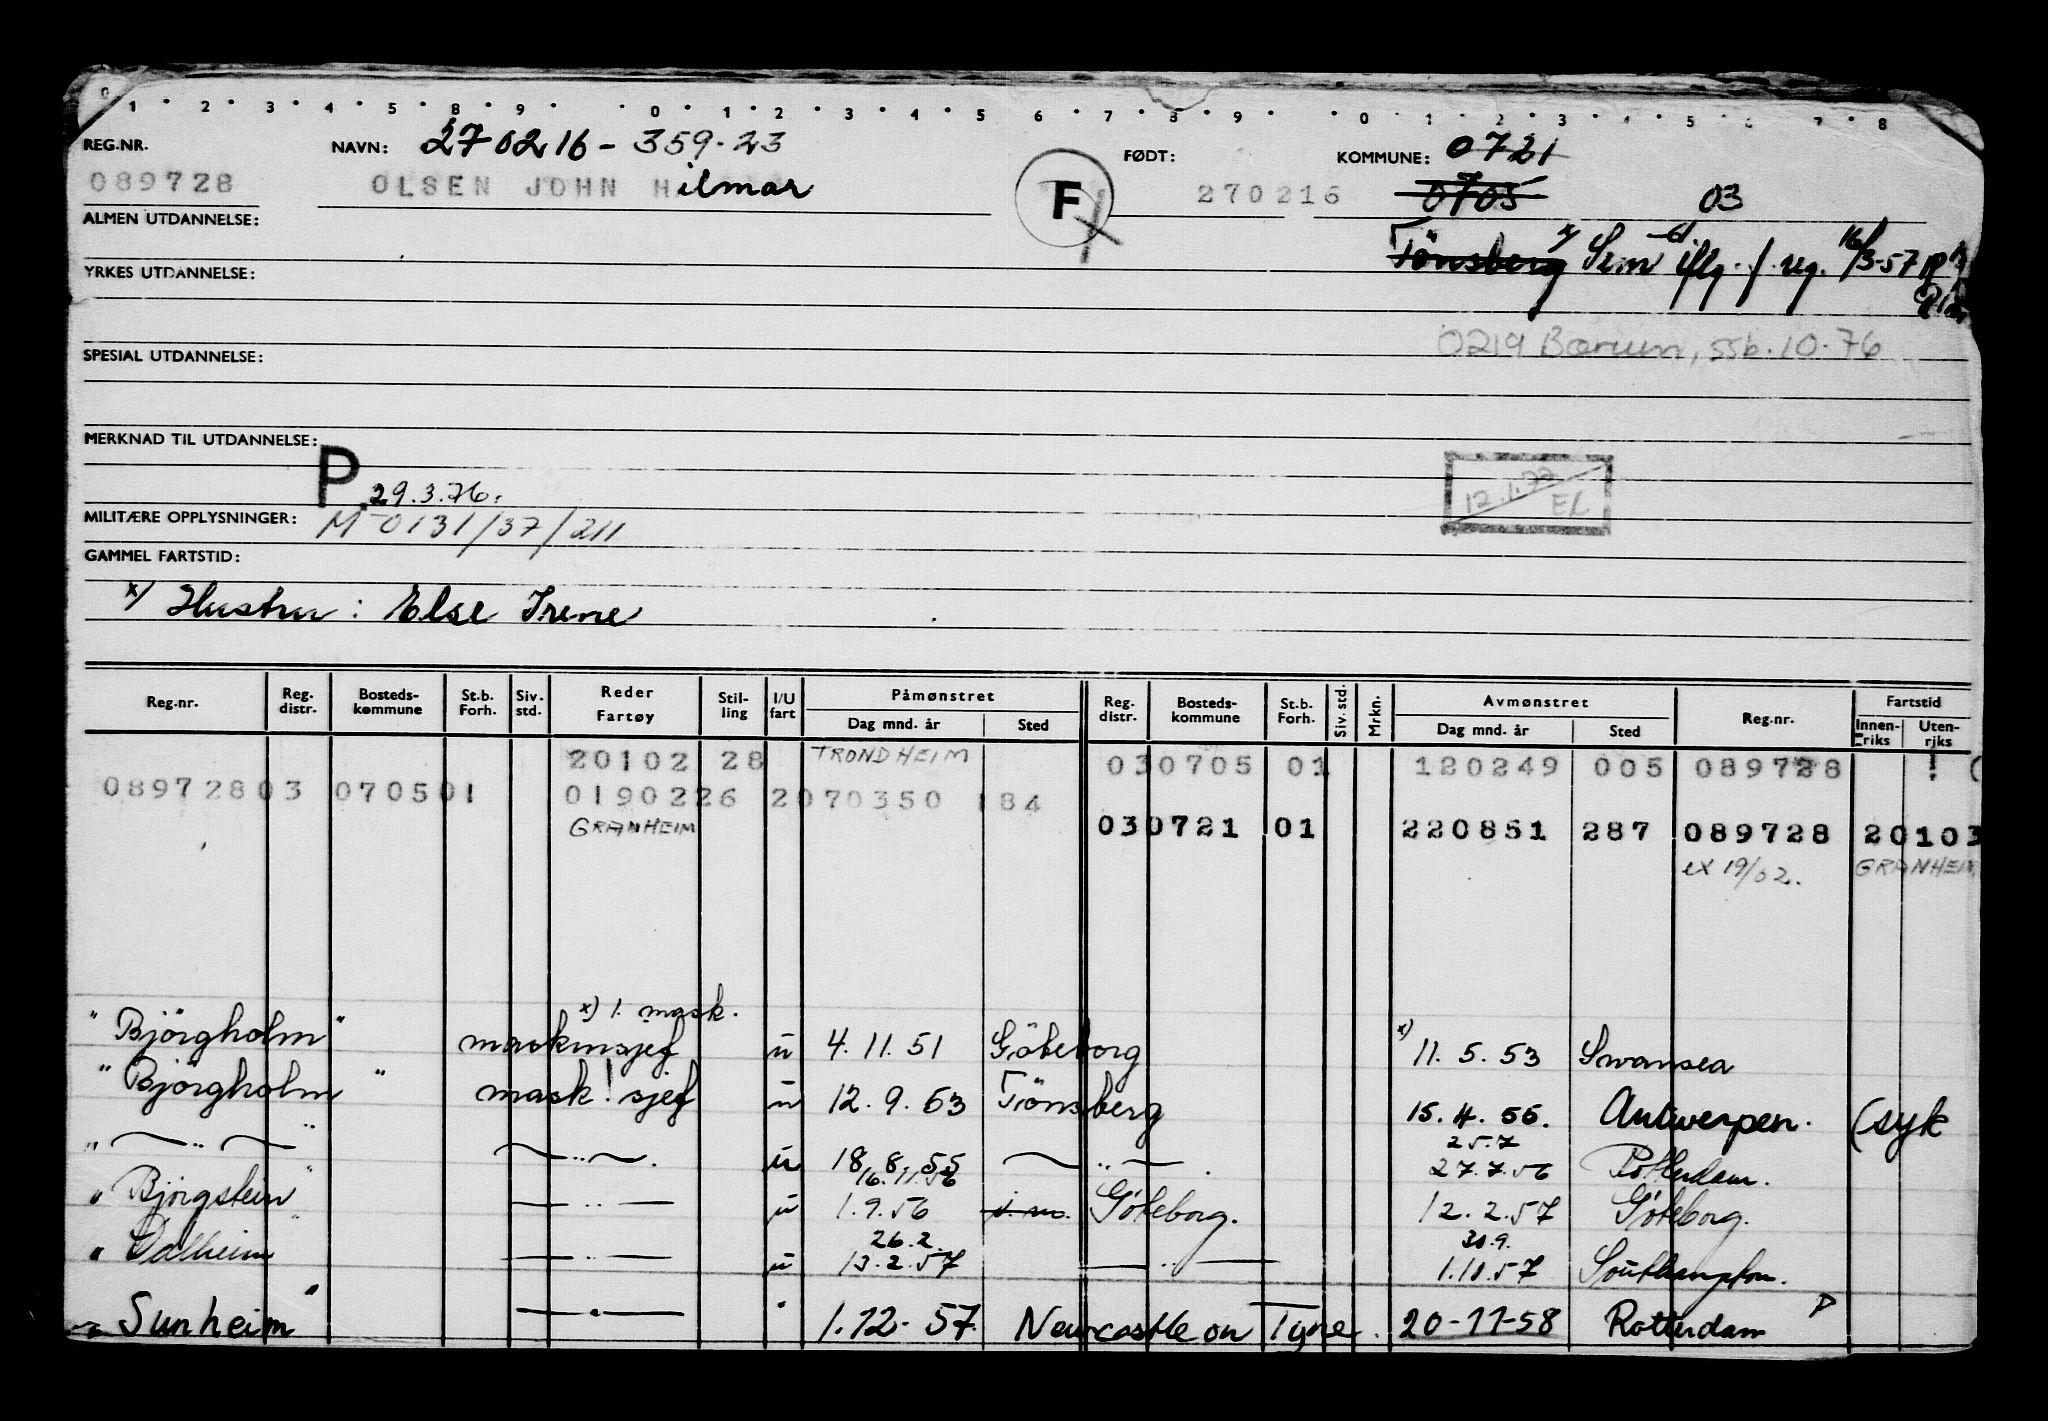 0 1 2 3 4 5 8 9 0 1 2 3 4 5 6 7 8 9 0 1 2 3 4 5 6 7 8
REG.NR. NAVN: 270216-359.23 FØDT: KOMMUNE: 0721
089728 OLSEN JOHN Hilmar F 270216 0705 03
ALMEN UTDANNELSE:
Tönsberg x) Sem iflg. f. reg. 16/3-57
YRKES UTDANNELSE:
0219 Bærum, ssb. 10.76
SPESIAL UTDANNELSE:
MERKNAD TIL UTDANNELSE:
P 29.3.76.
12.1.77 EL
MILITÆRE OPPLYSNINGER: M 0131/37/211
GAMMEL FARTSTID:
x) Hustru: Else Irene
Reg.nr. Reg. distr. Bosteds-kommune St.b. Forh. Siv. std. Reder Fartøy Stil-ling I/U fart Påmønstret Dag mnd. år Sted Reg. distr. Bosteds-kommune St.b. Forh. Siv. std. Mrkn. Avmønstret Dag mnd. år Sted Reg.nr. Fartstid Innen-riks Uten-riks
20102 28 TRONDHEIM 030705 01 120249 005 089728
08972803 070501 0190226 2070350 184
GRANHEIM 030721 01 220851 287 089728 20103
ex 19/02. GRANHEIM
x) 1. mask.
"Björgholm" maskinsjef u 4.11.51 Göteborg x) 11.5.53 Swansea
"Björgholm" mask. sjef u 12.9.53 Tönsberg 15.4.55. Antwerpen. (syk
" — " — " — " —. u 18.8.55 — " —. 25.7 27.7.56 Rotterdam.
16.11.56
"Björgstein" — " — u 1.9.56 Göteborg. 12.2.57 Göteborg.
26.2. 30.9.
"Dalheim" — " — u 13.2.57 — " — 1.10.57 Southampton.
"Sunheim" — " — " 1.12.57. Newcastle on Tyne. 20-11-58 Rotterdam